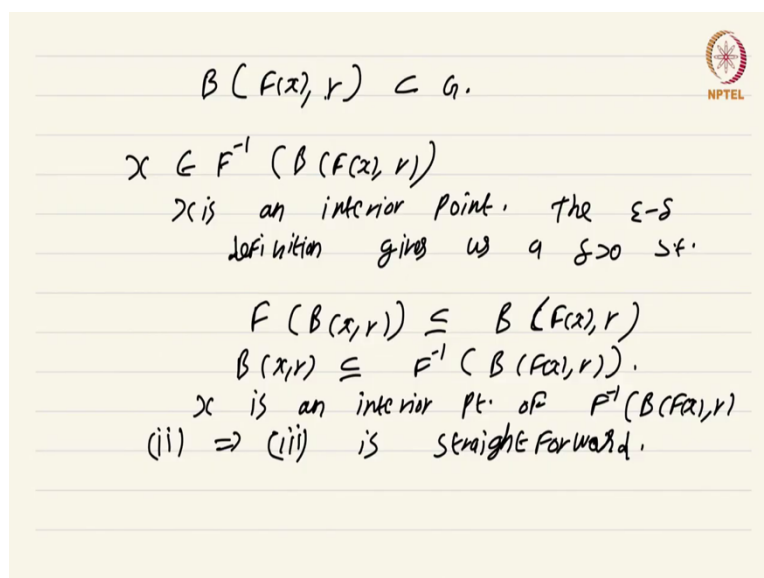 B ( F(x), r ) ⊂ G.
NPTEL
x ∈ F⁻¹ ( B ( F(x), r))
x is an interior point. The ε-δ
definition gives us a δ>0 st.
F ( B(x, r)) ⊆ B ( F(x), r )
B (x,r) ⊆ F⁻¹ ( B ( F(x), r)).
x is an interior pt. of F⁻¹( B (F(x), r)
(ii) ⇒ (iii) is straightforward.